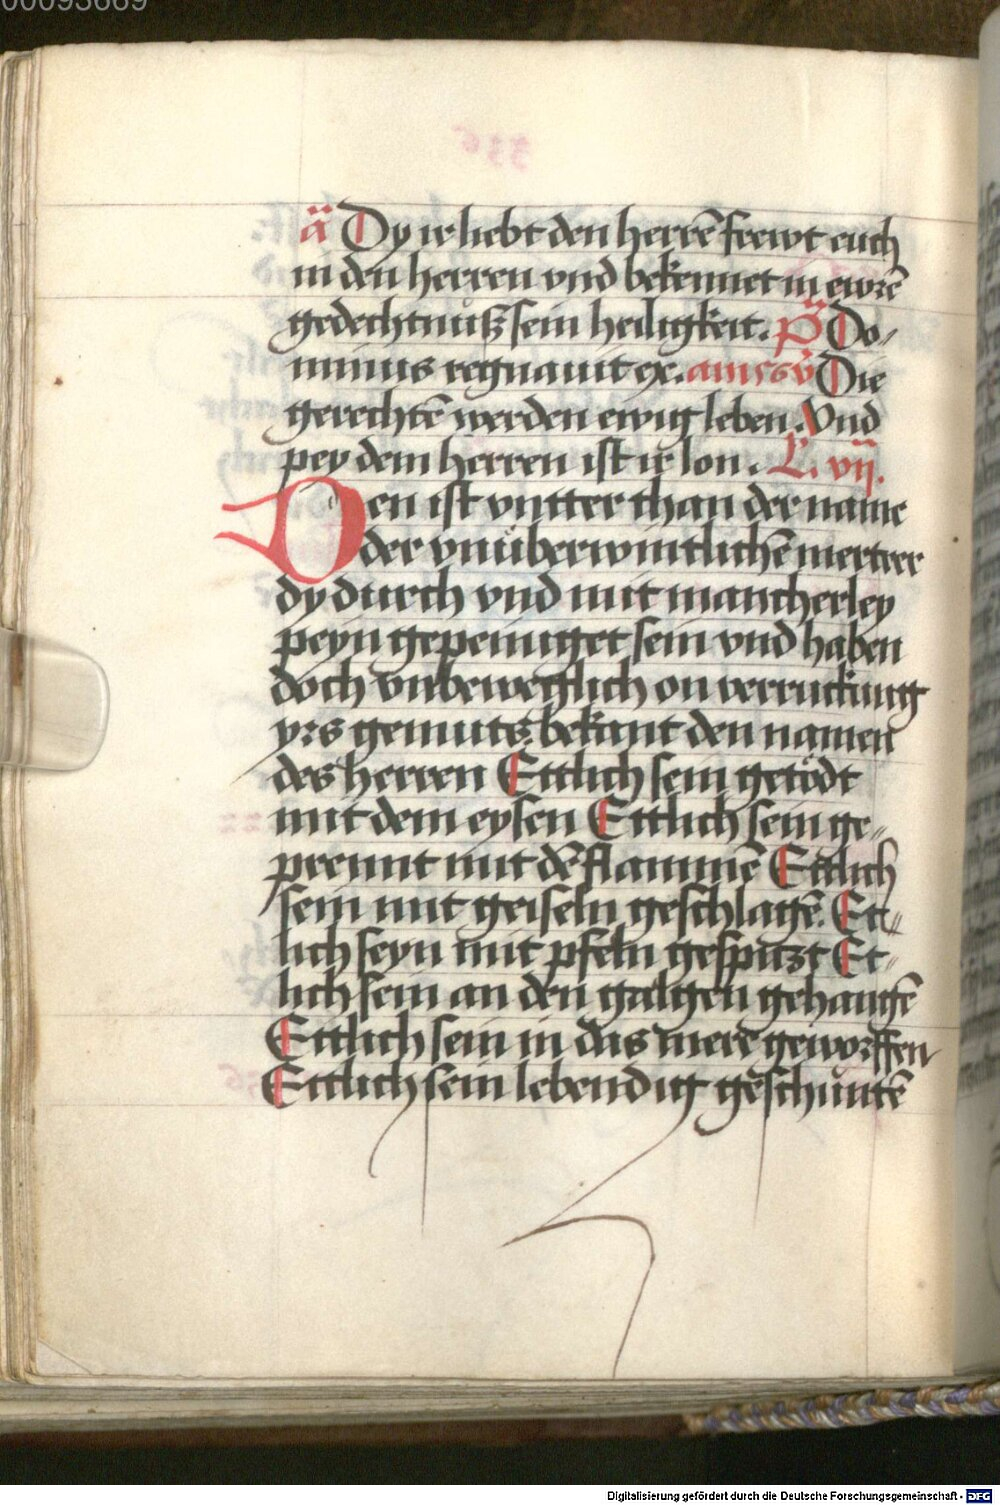 00093669
ä Dy ir liebt den herrē frewt euch
in den herren vnd bekennet in ewrē
gedechtnüß sein heiligkeit. p̈s Do-
minus regnauit ex. am 156 v̈ Die
gerechtē werden ewig leben. Vnd
pey dem herren ist ir lon. L. vij.
Den ist vntter than der name
der vnüberwintlichē mertrer
dy durch vnd mit mancherley
peyn gepeiniget sein vnd haben
doch vnbeweglich on verruckung
yrs gemuts bekant den namen
des herren Ettlich sein getödt
mit dem eysen Ettlich sein ge-
prennt mit dē flammē Ettlich
sein mit geiseln geschlagē. Et-
lich seyn mit pfeln gespitzt Et-
lich sein an den galgen gehangē
Ettlich sein in das mere geworffen
Ettlich sein lebendig geschuntē
Digitalisierung gefördert durch die Deutsche Forschungsgemeinschaft - DFG